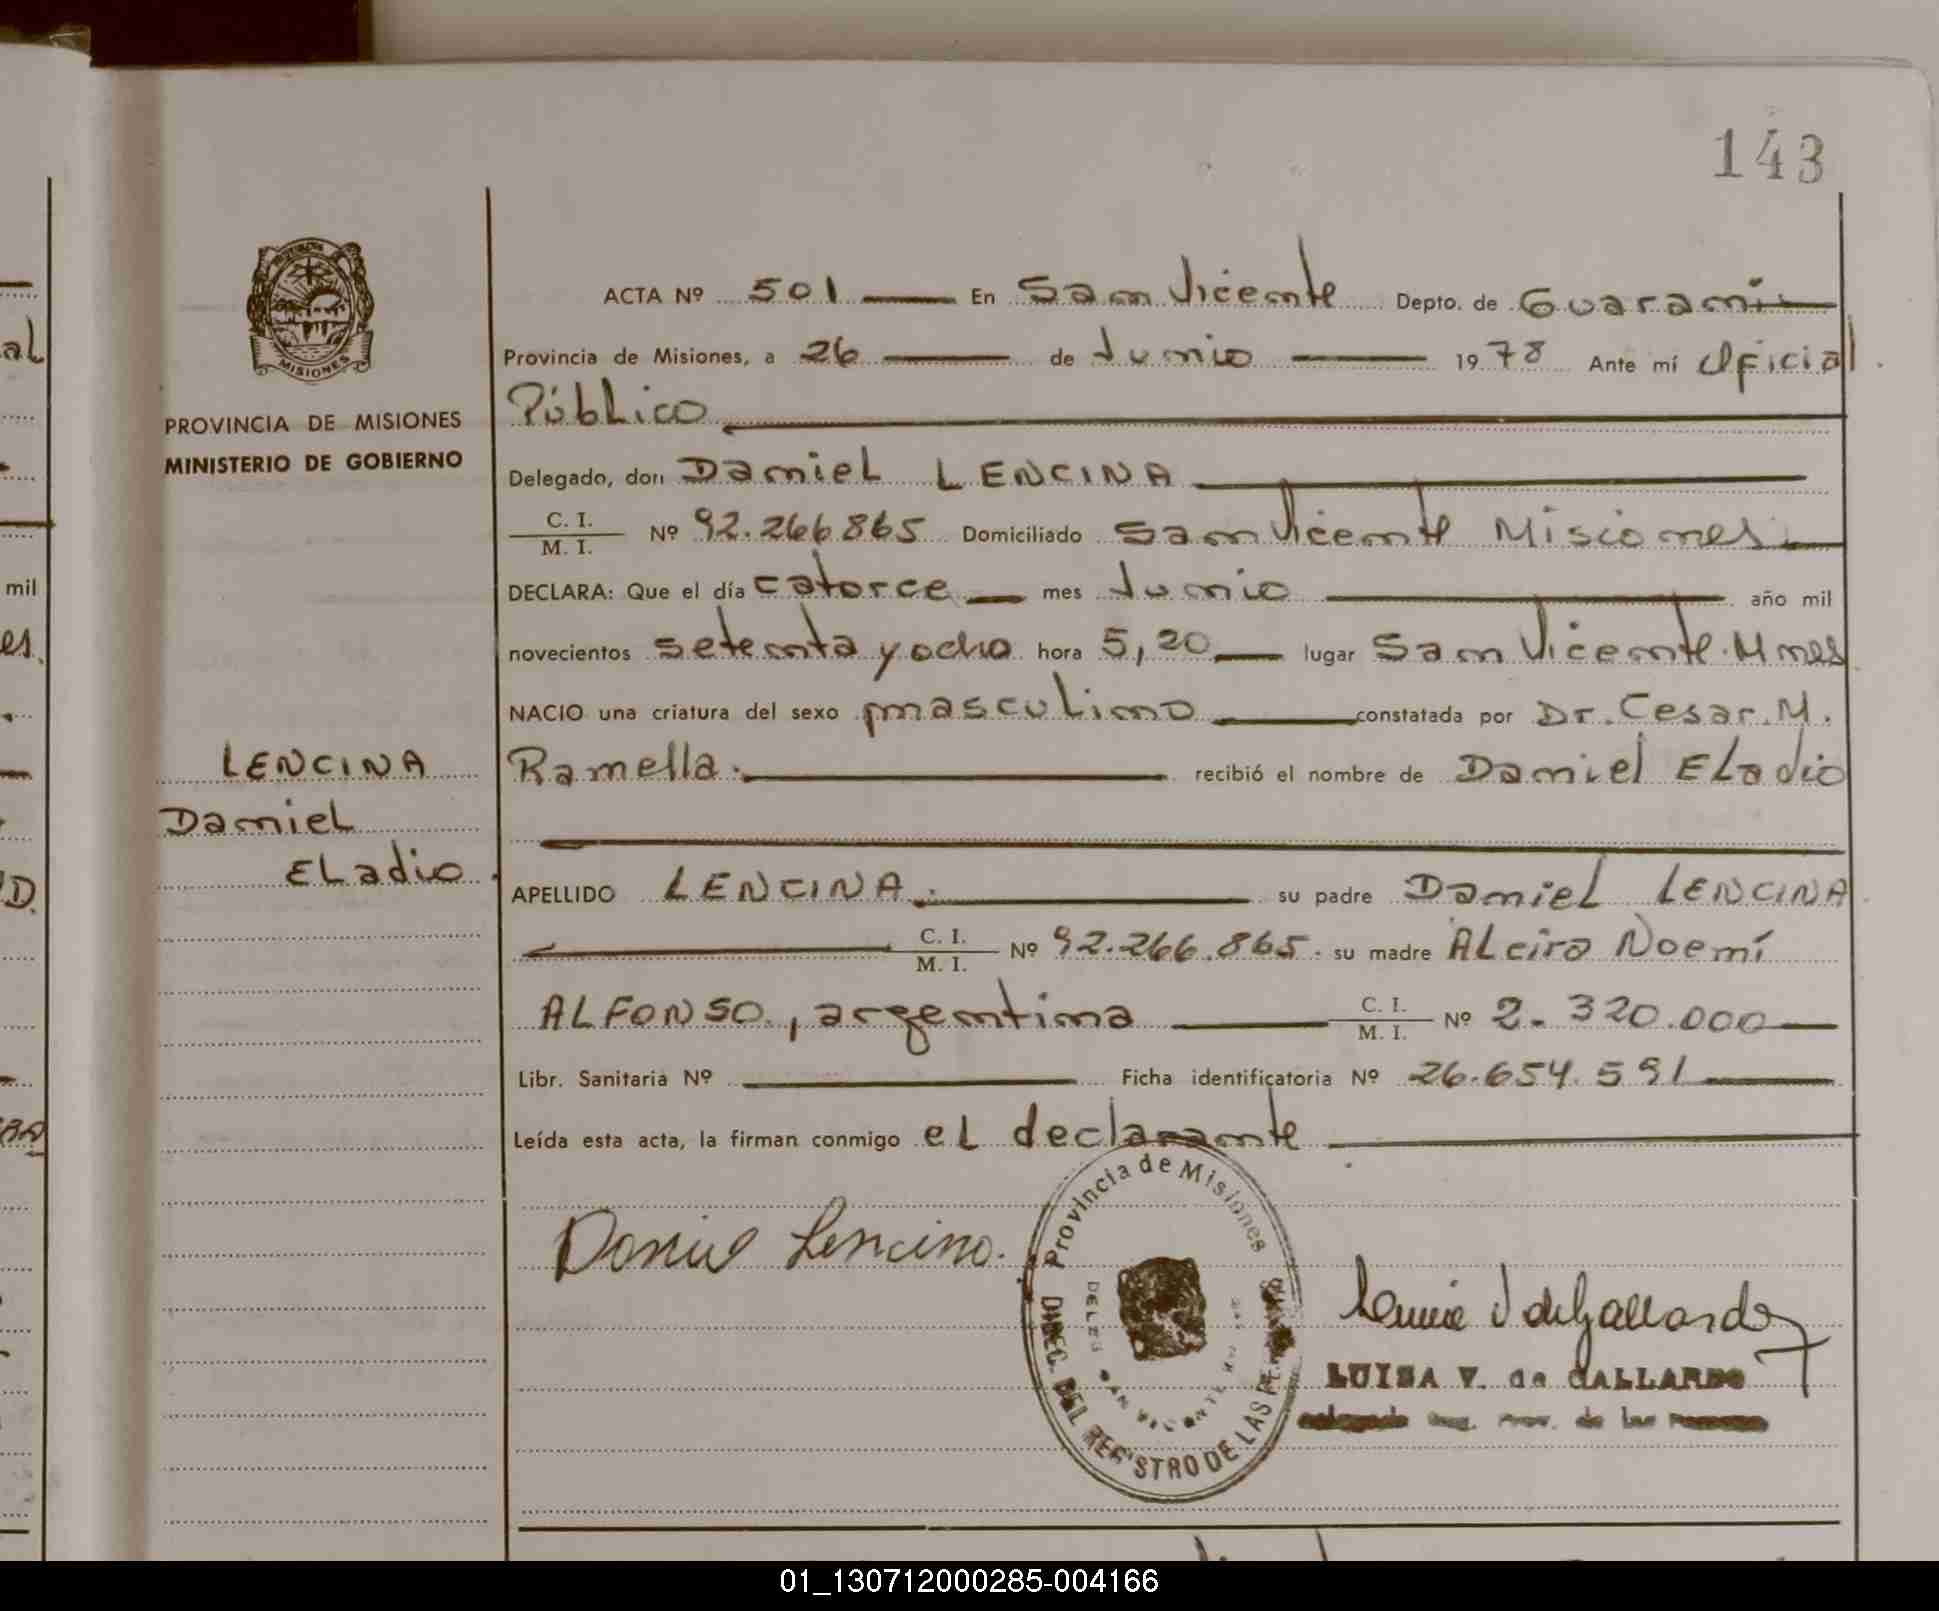 143
PROVINCIA DE MISIONES
MINISTERIO DE GOBIERNO
MISIONES
LENCINA
Daniel
Eladio
ACTA Nº 501 En San Vicente Depto. de Guarani
Provincia de Misiones, a 26 de Junio 1978 Ante mí Oficial
Público
Delegado, don Daniel LENCINA
C. I.
M. I.
Nº 92.266.865 Domiciliado San Vicente Misiones
DECLARA: Que el día catorce mes Junio año mil
novecientos setenta y ocho hora 5,20 lugar San Vicente. Mnes
NACIO una criatura del sexo masculino constatada por Dr. Cesar. M.
Ramella. recibió el nombre de Daniel Eladio
APELLIDO LENCINA. su padre Daniel LENCINA
C. I.
M. I.
Nº 92.266.865. su madre Alcira Noemí
ALFONSO., argentina C. I.
M. I.
Nº 2.320.000
Libr. Sanitaria Nº Ficha identificatoria Nº 26.654.591
Leída esta acta, la firman conmigo el declarante
Daniel Lencina.
Provincia de Misiones
DIREC. DEL REGISTRO DE LAS
V de Gallardo
LUISA V. de GALLARDO
Prov. de las
al
mil
es.
D.
01_130712000285-004166